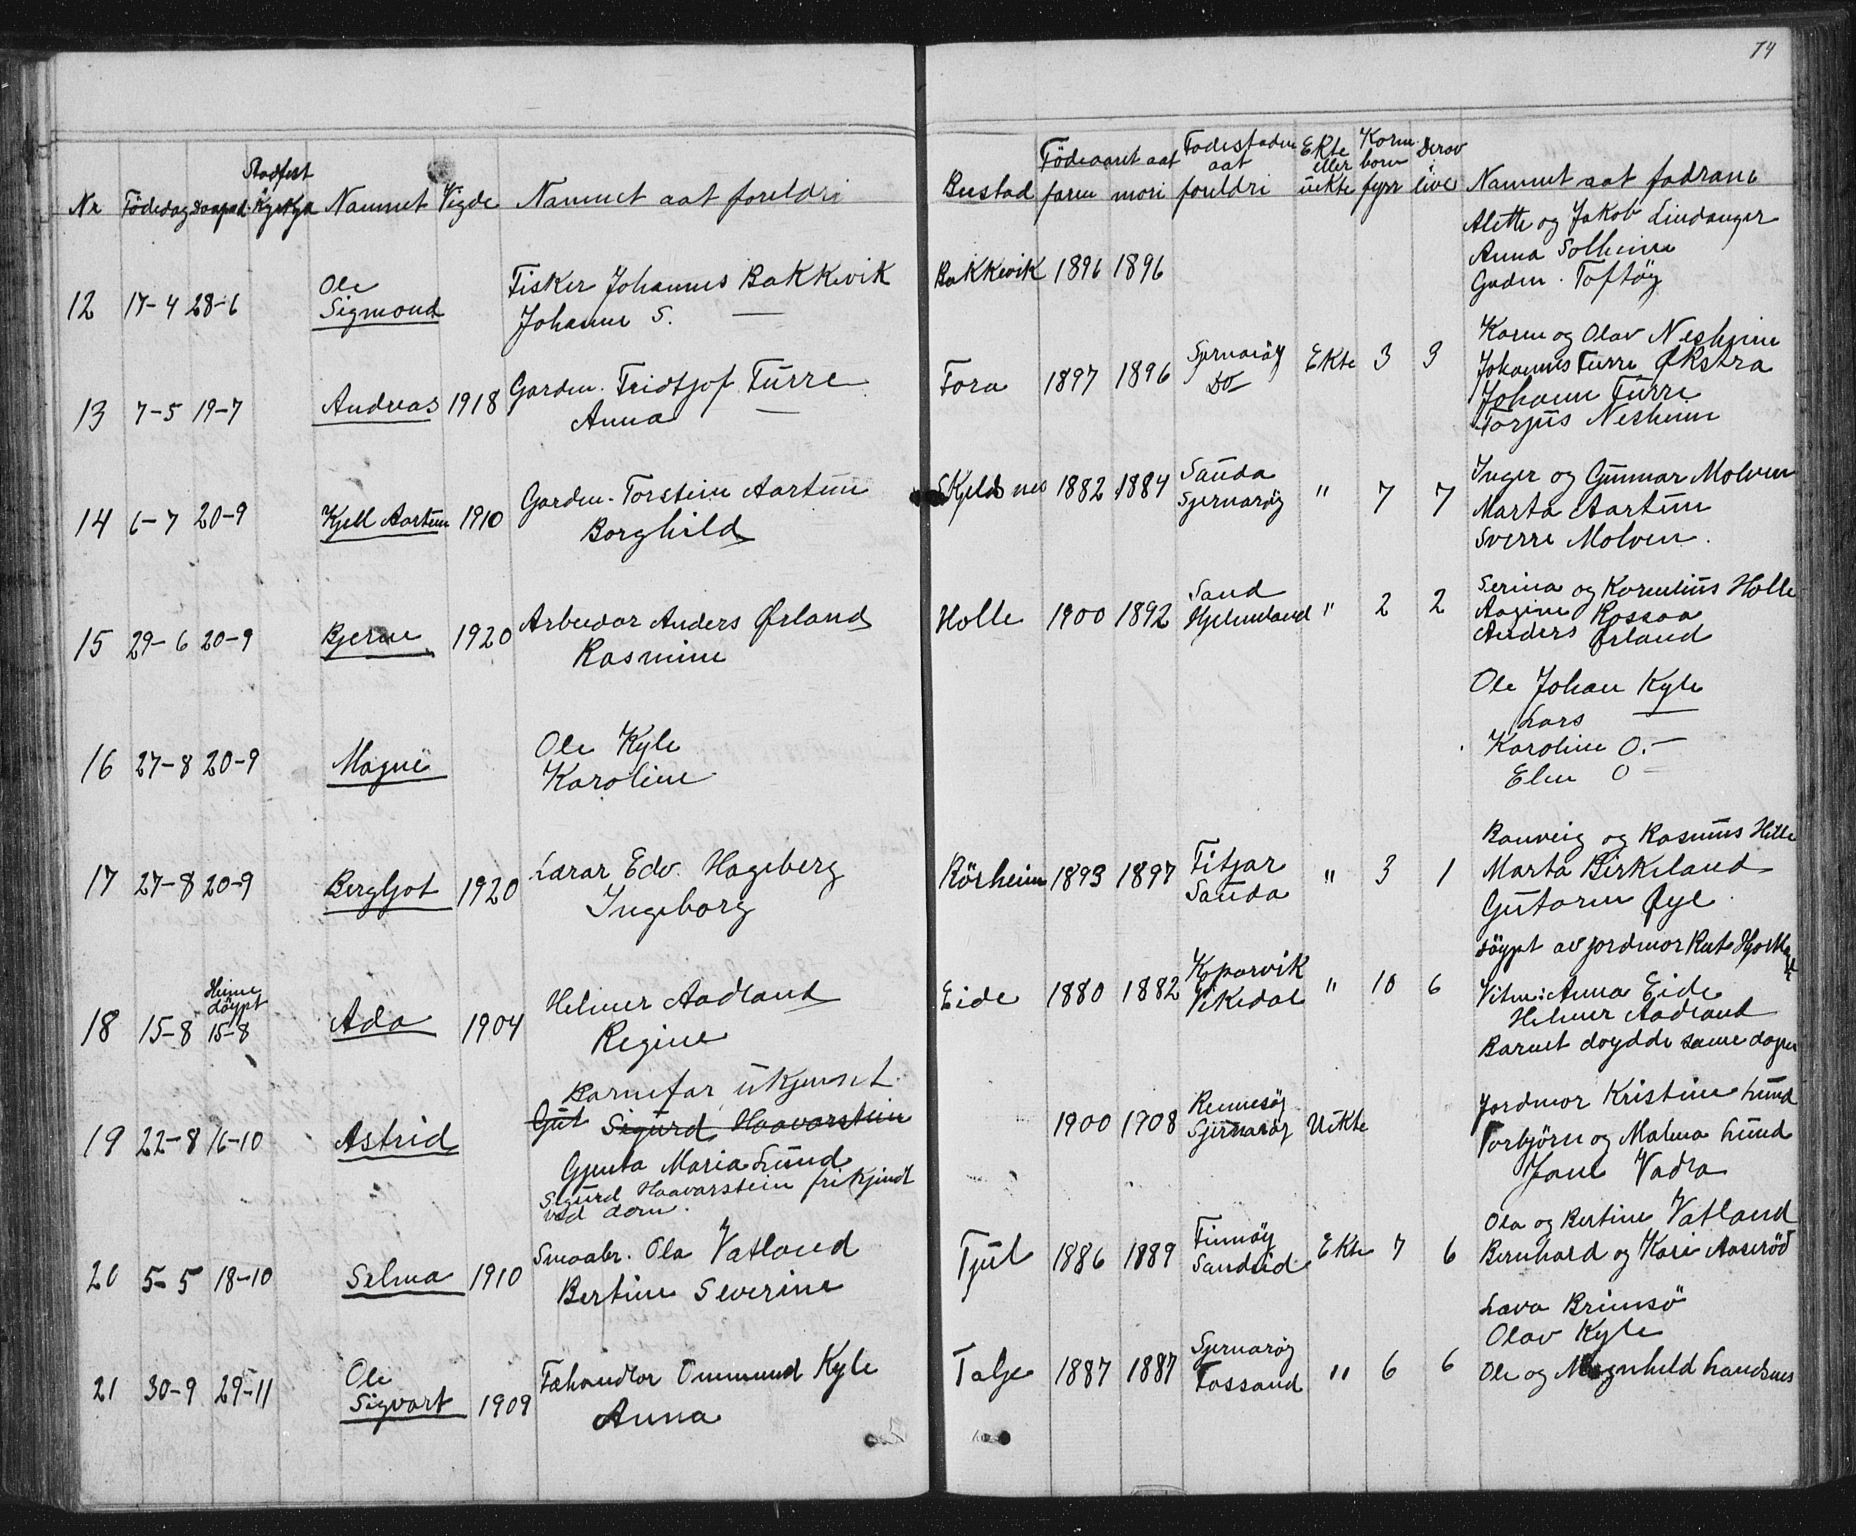 74
Nr Födedag Daapsd. Stadfest Kyrkja Namnet Vigde Namnet aat foreldri Bustad Födeaaret aat faren mori Fodestaden aat foreldri Ekte eller uekte Korm. born fyrr Derav live Namnet aat fadrane
12 17-4 28-6 Ole Sigmond Fisker Johannes Bakkevik Bakkevik 1896 1896 Alette og Jakob Lindanger
Johanne S. — Anna Solheim
Garden. Toftöy
13 7-5 19-7 Andreas 1918 Garden. Fridtjof Furre Fora 1897 1896 Sjernaröy Ekte 3 3 Karen og Olav Nesheim
Anna — Do Johannes Furre Økstra
Johann Furre
Torjus Nesheim
14 6-7 20-9 Kjell Aartun 1910 Garden. Torstein Aartun Skjeldnes 1882 1884 Sauda " 7 7 Inger og Gunnar Molven
Borghild Sjernaröy Marta Aartun
Sverre Molven.
15 29-6 20-9 Bjerne 1920 Arbeidar Anders Ørland Halle 1900 1892 Sand " 2 2 Serina og Kornelius Halle
Rasmine Hjelmeland Aagine Rossaa
Anders Ørland
16 27-8 20-9 Magne Ole Kyle Ole Johan Kyle
Karoline Lars —
Karoline O. —
Elen O —
17 27-8 20-9 Bergljot 1920 Lærar Edv. Hageberg Rörheim 1893 1897 Fitjar " 3 1 Ranveig og Rasmus Hille
Ingeborg Sauda Marta Birkeland
Gutorm Øye.
18 15-8 Heime döypt 15-8 Ada 1904 Helmer Aadland Eide 1880 1882 Koparvik " 10 6 döypt av jordmor Rut
Regine Vikedal Vitne: Anna Eide
Helmer Aadland
Barnet doydde same dagen
19 22-8 16-10 Astrid Barnefar ukjenset. 1900 1908 Rennesöy Uekte Jordmor Kristine Lund
Gut Sigurd Haavarstein Sjernaröy Torbjörn og Malena Lund
Gjenta Maria Lund Jane Vadla
Sigurd Haavarstein frikjendt
ved dom.
20 5-5 18-10 Selma 1910 Smaabr. Ola Vatland Tjul 1886 1889 Finnöy Ekte 7 6 Ola og Bertine Vatland
Bertine Severine Sandeid Bernhard og Kari Aaseröd
21 30-9 29-11 Ole Sigvart 1909 Fehandlar Ommund Kyle Talje 1887 1887 Sjernaröy " 6 6 Lava Brimsö
Anna Fossand Olav Kyle
Ole og Magnhild Landsnes